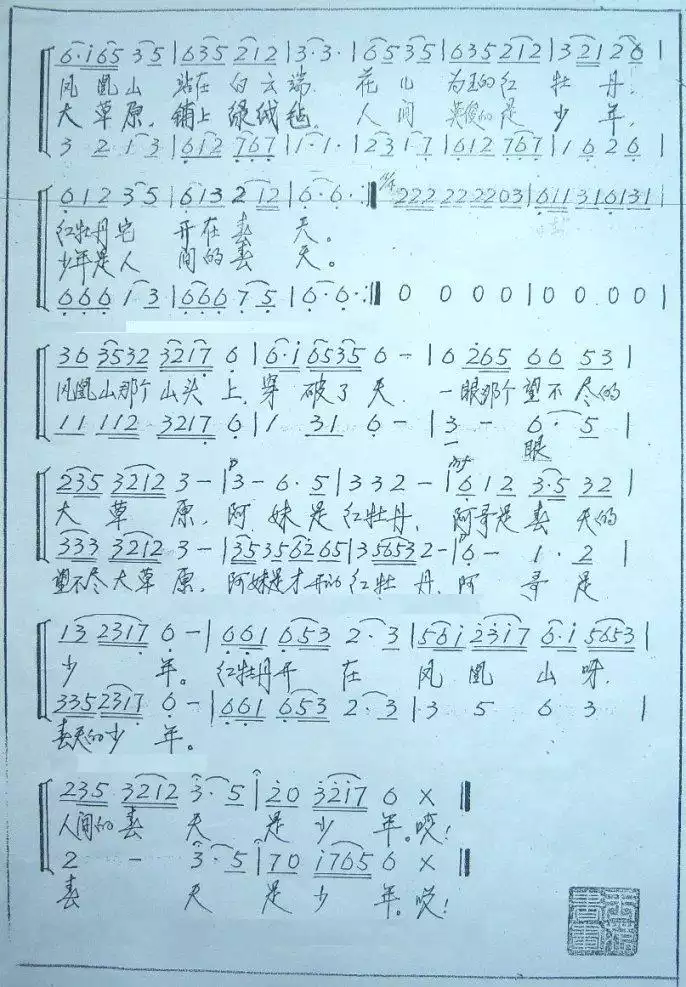 6·i65 35 | 635 212 | 3·3· | 65 35 | 635 212 | 32126 |
凤凰山 站在白云端, 花儿为王的红牡丹,
大草原, 铺上绿绒毡 人间英俊的是少年,
3 2 1 3 | 612 767 | 1·1· | 231 7 | 612 767 | 1 6 2 6 |
6 1 2 35 | 613 2 12 | 6·6· :‖ 222 222 2203 | 611 31 6131 |
红牡丹它 开在春天。
少年是人 间的春天。
666 1 3 | 666 7 5 | 6·6· :‖ 0 0 0 0 | 0 0 0 0 |
36 3532 3217 6 | 6·i 6535 6 - | 6 265 66 53 |
凤凰山那个山头上, 穿破了天 一眼那个望不尽的
11 112 3217 6 | 1 31 6 - | 3 - 6· 5 |
眼
235 3212 3 - | 3 - 6· 5 | 3 3 2 - | 6 12 3·5 32 |
大草原, 阿妹是红牡丹, 阿哥是春天的
333 3212 3 - | 35 35 62 65 | 35653 2 - | 6 - 1· 2 |
望不尽大草原, 阿妹是才开的红牡丹, 阿哥是
13 2317 6 - | 661 653 2·3 | 56i 2317 6·i 5653 |
少年。红牡丹开在凤凰山呀,
335 2317 6 - | 661 653 2·3 | 3 5 6 3 |
春天的少年。
235 3212 3·5 | 20 3217 6 X ‖
人间的春天是少年。哎!
2 - 3·5 | 70 i765 6 X ‖
春天是少年。哎!